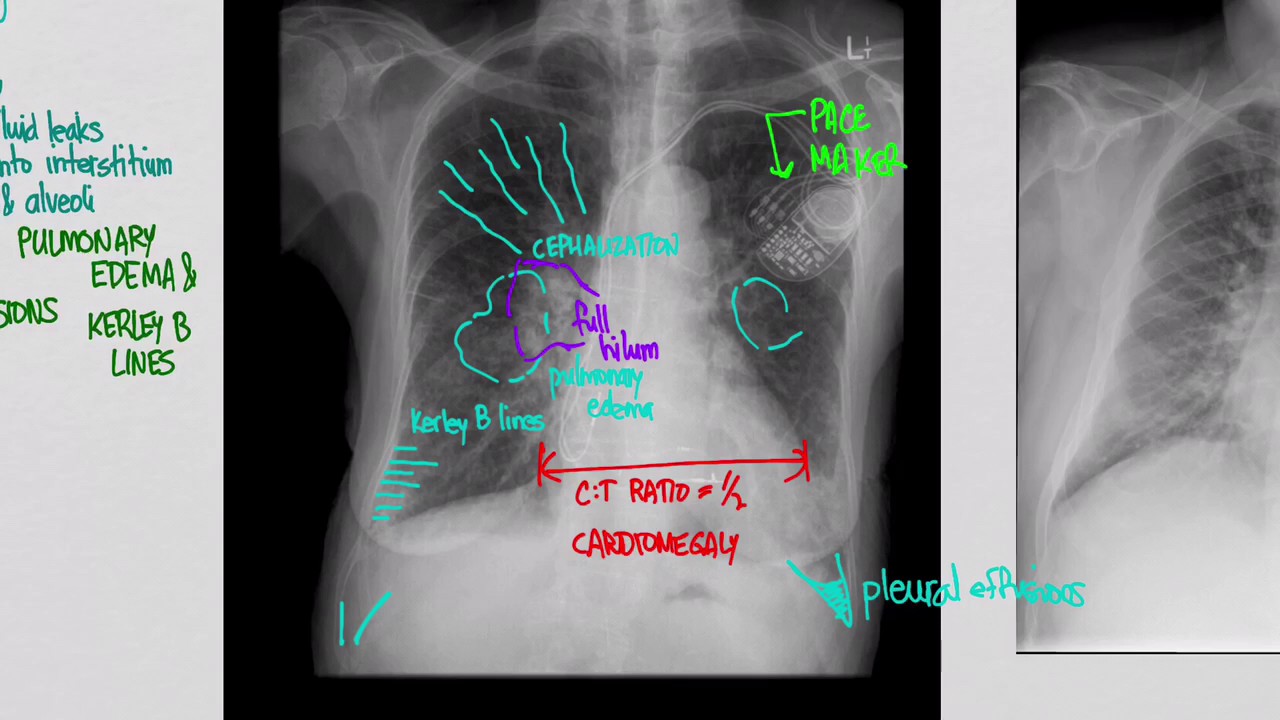 luid leaks
nto interstitium
& alveoli
PULMONARY
EDEMA &
SIONS
KERLEY B
LINES
L
PACE
MAKER
CEPHALIZATION
full
hilum
pulmonary
edema
Kerley B lines
C:T RATIO = 1/2
CARDIOMEGALY
pleural effusions